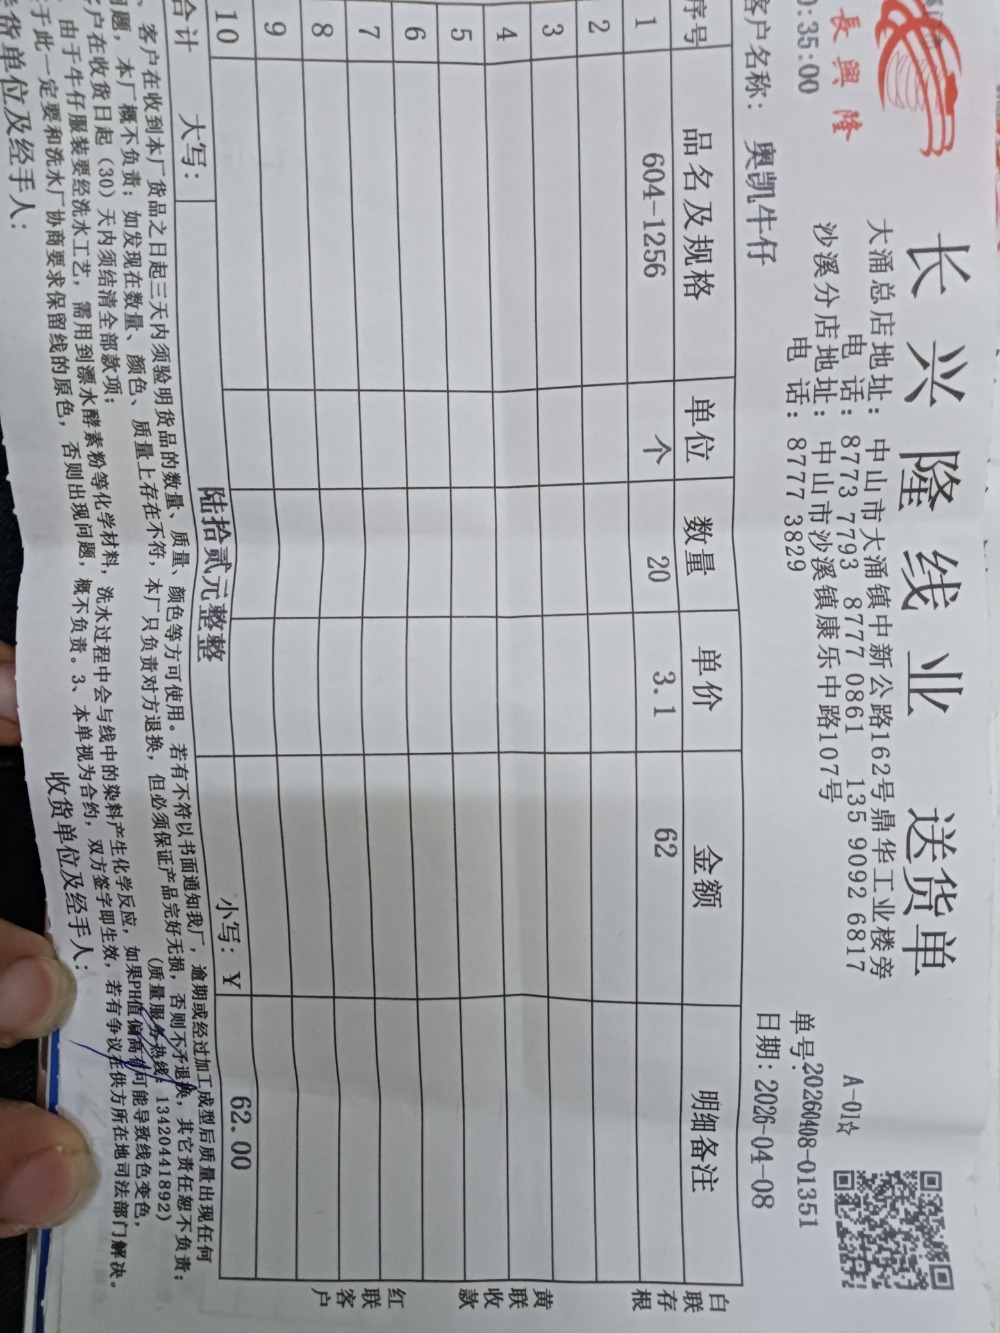 長興隆
长兴隆线业 送货单
大涌总店地址：中山市大涌镇中新公路162号鼎华工业楼旁
电 话：8773 7793 8777 0861 135 9092 6817
沙溪分店地址：中山市沙溪镇康乐中路107号
电 话：8777 3829
A-01☆
单号:20260408-01351
0:35:00
客户名称： 奥凯牛仔
日期: 2026-04-08
序号 品名及规格 单位 数量 单价 金额 明细备注
1 604-1256 个 20 3.1 62
2
3
4
5
6
7
8
9
10
合计 大写： 陆拾贰元整整 小写：￥ 62.00
白联存根
黄联收款
红联客户
、客户在收到本厂货品之日起三天内须验明货品的数量、质量、颜色等方可使用。若有不符以书面通知我厂，逾期或经过加工成型后质量出现任何
问题，本厂概不负责；如发现在数量、颜色、质量上存在不符，本厂只负责对方退换，但必须保证产品完好无损，否则不予退换，其它责任恕不负责；
户在收货日起（30）天内须结清全部款项； (质量服务热线：13420441892)
由于牛仔服装要经洗水工艺，需用到漂水酵素粉等化学材料，洗水过程中会与线中的染料产生化学反应，如果PH值偏高有可能导致线色变色，
于此一定要和洗水厂协商要求保留线的原色，否则出现问题，概不负责。3、本单视为合约，双方签字即生效，若有争议在供方所在地司法部门解决。
货单位及经手人： 收货单位及经手人：